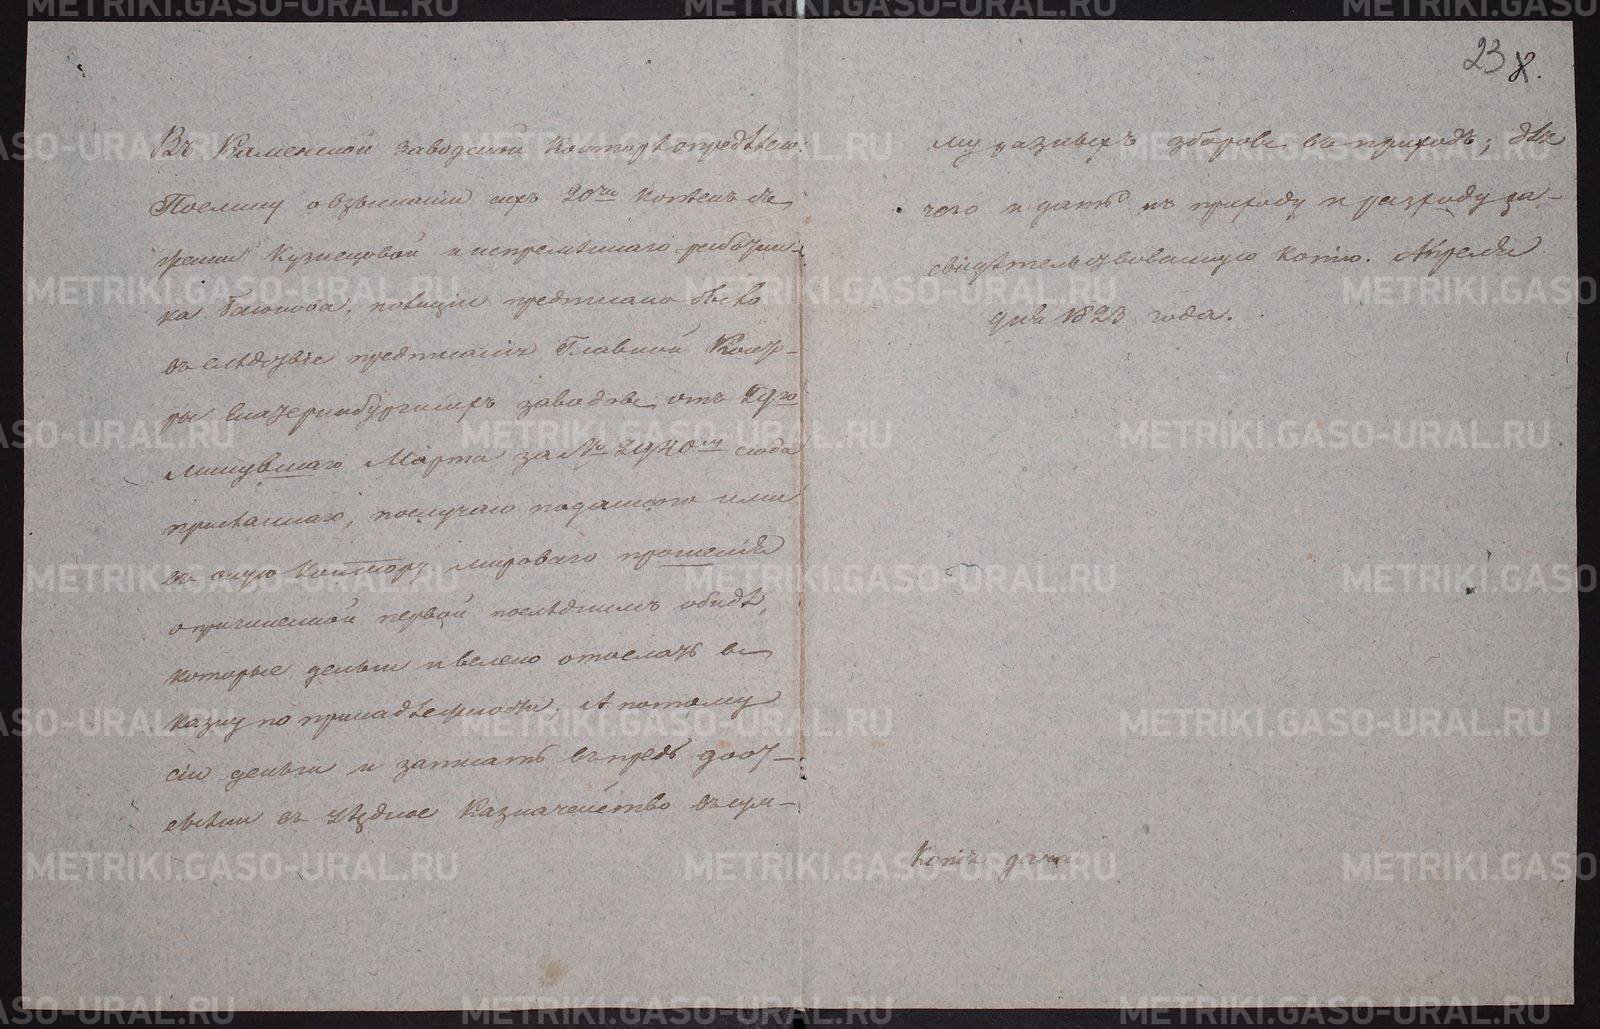 23 8.
Въ Каменской заводской Конторѣ опредѣлено:
Поелику о взысканіи сихъ 20ти копѣекъ съ
Кузнецовой и непремѣннаго работни-
ка предписано было
въ слѣдствіе предписанія Главной Конто-
ры Екатеринбургскихъ заводовъ отъ 29го
минувшаго Марта за № 2940м сюда
присланнаго, по случаю поданнаго ими
въ оную Контору мироваго прошенія
о причиненной первой послѣднимъ обидѣ,
которые деньги и велено отослать въ
казну по принадлежности. А потому
сіи деньги и записать впредь до от-
сылки въ Уѣздное Казначейство въ сум-
му разныхъ зборовъ въ приходъ; для
чего и дать къ приходу и расходу за-
свидѣтельствованную копію. Апрѣля
дня 1823 года.
Копія дана
METRIKI.GASO-URAL.RU